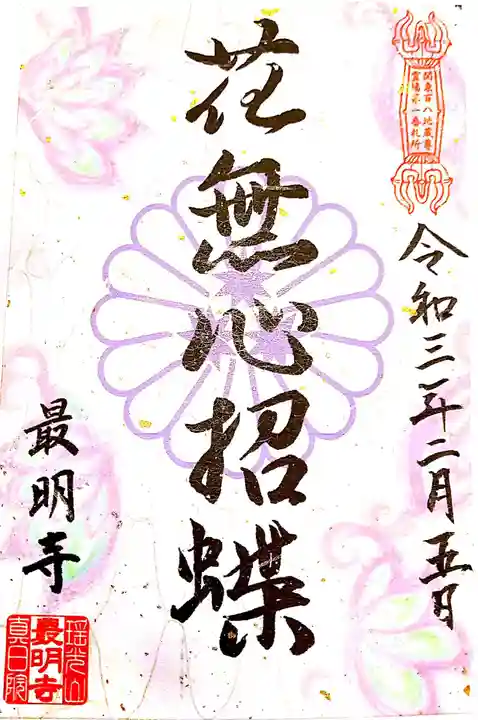 関東百八地蔵尊
霊場第一番札所
令和三年二月五日
花無心招蝶
最明寺
瑶光山
最明寺
真白院